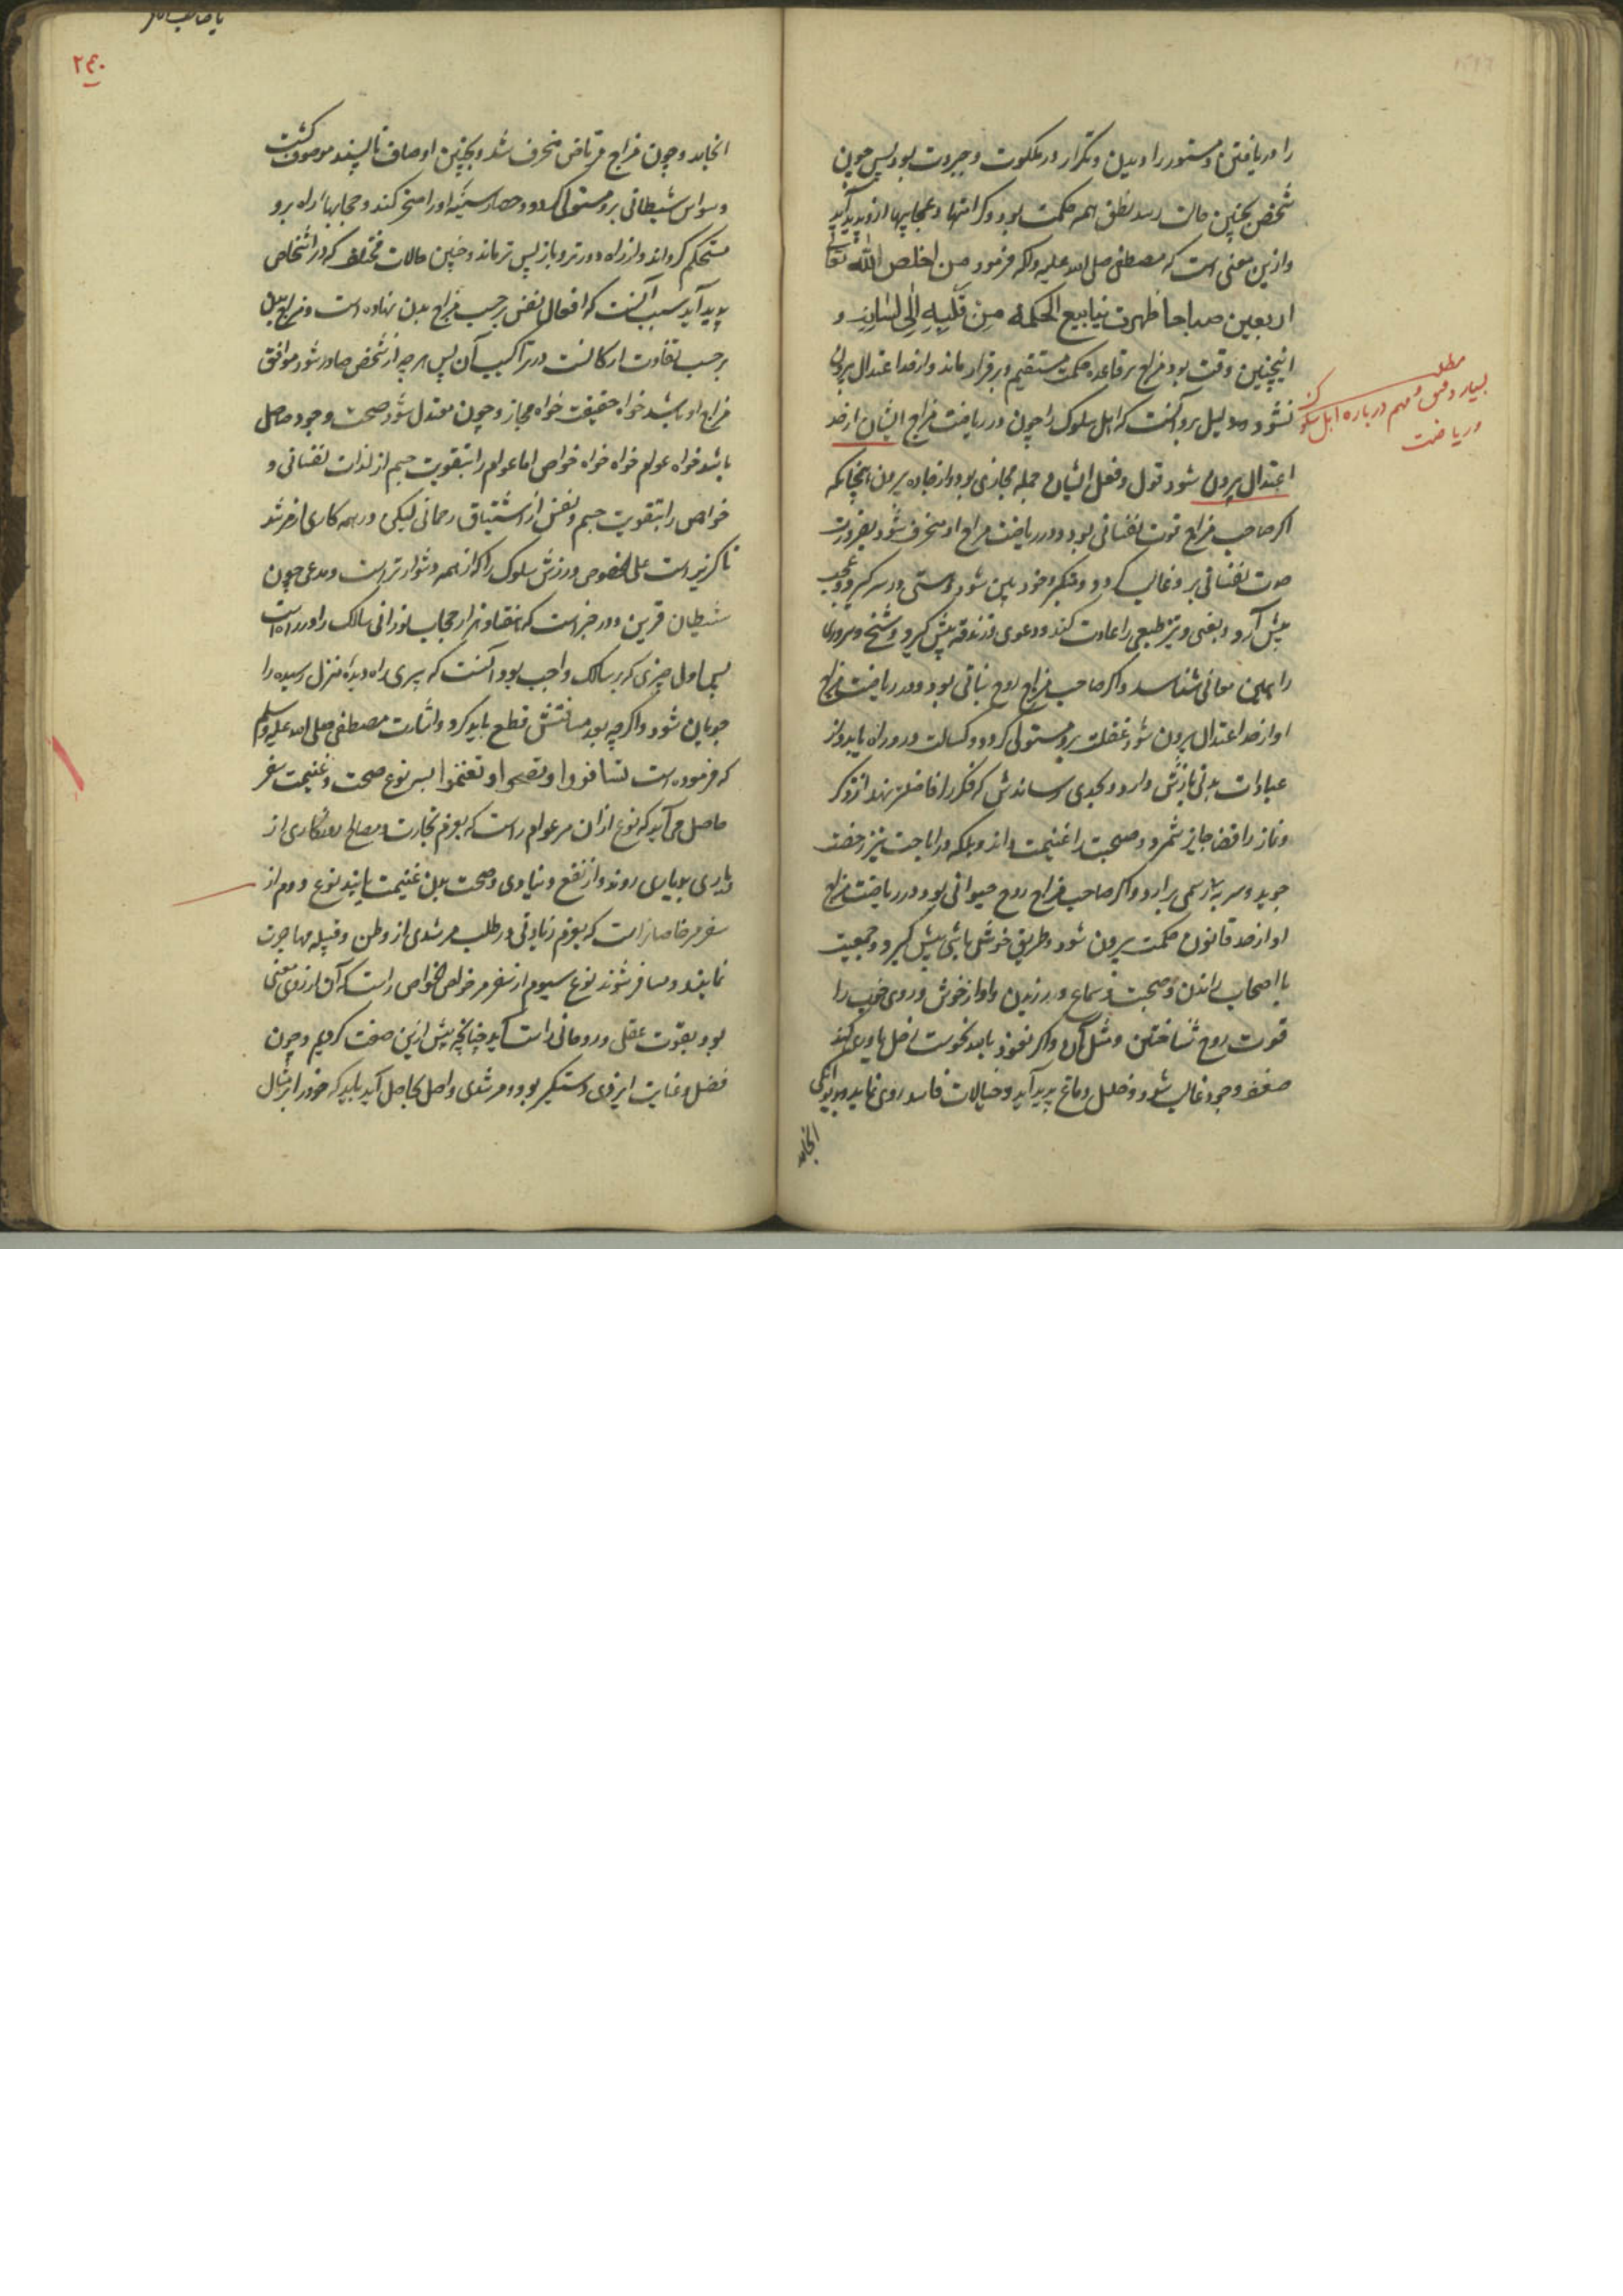 را دریافتن و مستور را دیدن و تکرار در ملکوت و جبروت بود پس چون
شخص بچنین حالت رسد نطق همه حکمت بود و کرامتها و عجایبها ازو پدید آید
و ازین معنی است که مصطفی صلی الله علیه واله فرمود من اخلص الله تعالی
اربعین صباحا ظهرت ینابیع الحکمه مِن قَلبِهِ اِلی لِسَانِهِ و
اینچنین وقت بود مزاج بر قاعده حکمت مستقیم و برقرار ماند و از حد اعتدال بیرون
نشود و دلیل برو آنست که اهل سلوک را چون در ریاضت مزاج ایشان از حد
مطلب
بسیار دقیق و مهم درباره اهل سلوک
و ریاضت
اعتدال بیرون شود قول و فعل ایشان جمله مجازی بود و از جاده بیرون همچنانکه
اکر صاحب مزاج قوت نفسانی بود و در ریاضت مزاج او منحرف شود بضرورت
صوت نفسانی برو غالب کردد و متکبر و خودبین شود و مستی در سر کیرد و عجب
پیش آرد و بغی و تیز طبعی را عادت کند و دعوی زندقه پیش کیرد و شیخ و سروری
را همین معانی شناسد و اکر صاحب مزاج روح نباتی بود و در ریاضت مزاج
او از حد اعتدال بیرون شود غفلت برو مستولی کردد و کسالت در و راه یابد و از
عبادات بدنی بازش دارد و بحدی رساندش که فکر را فاضلتر نهد از ذکر
و نماز را قضا جایز شمرد و صحبت را غنیمت داند و بلکه در اباحت نیز رخصت
جوید و سر به بی رسمی برآرد و اکر صاحب مزاج روح حیوانی بود و در ریاضت مزاج
او از حد قانون حکمت بیرون شود و طریق خوش باشی پیش کیرد و جمعیت
با اصحاب راندن و صحبت و سماع ورزیدن و اواز خوش و روی خوب را
قوت روح شناختن و مثل آن و اکر نعوذ بالله نحوست زحل یاوری کند
ضعف وجود غالب شود و خلل دماغ پدید آید و خیالات فاسد روی نماید و بدیوانکی
انجامد
۲۴۰
انجامد و چون مزاج مرتاض منحرف شد و بچنین اوصاف ناپسند موصوف کشت
وسواس شیطانی برو مستولی کردد و حصار سینه او را مسخر کند و حجابها را راه برو
مستحکم کرداند و از راه دورتر و باز پس تر ماند و چنین حالات مختلف که در اشخاص
پدید آید سبب آنست که افعال نفس بر حسب مزاج بدن نهاده است و مزاج بدن
بر حسب تفاوت ارکانست در تراکیب آن پس هر چه از شخص صادر شود موافق
مزاج او باشد خواه حقیقت خواه مجاز و چون معتدل شود صحت وجود حاصل
باشد خواه عوام خواه خواص اما عوام را بتقویت جسم از لذات نفسانی و
خواص را بتقویت جسم و نفس از اشتیاق رحمانی لیکن در همه کاری از مرشد
ناکزیر است علی الخصوص ورزش سلوک را که از همه دشوارتر است و مدعی چون
شیطان قرین و در خبر است که هفتاد هزار حجاب نورانی سالک را در راه است
پس اول چیزی که بر سالک واجب بود آنست که پیری راه دیده منزل رسیده را
جویان شود و اکر چه بعد مسافتش قطع باید کرد و اشارت مصطفی صلی الله علیه وسلم
که فرموده است تسافروا و تصحوا و تغنموا بسه نوع صحت و غنیمت سفر
حاصل می آید که نوع از آن مر عوام راست که بعزم تجارت و مصالح روزکاری از
دیاری بدیاری روند و از نفع دنیاوی و صحت بدن غنیمت یابند نوع دوم از
سفر مر خاصانراست که بعزم زیادتی در طلب مرشدی از وطن و قبیله مهاجرت
نمایند و مسافر شوند نوع سیوم از سفر مر خواص الخواص راست که آن از روی معنی
بود و بقوت عقلی و روحانی راست آید چنانچه پیش ازین صفت کردیم و چون
فضل و عنایت ایزدی دستکیر بود و مرشدی واصل بحاصل آید باید که خود را بر مثال